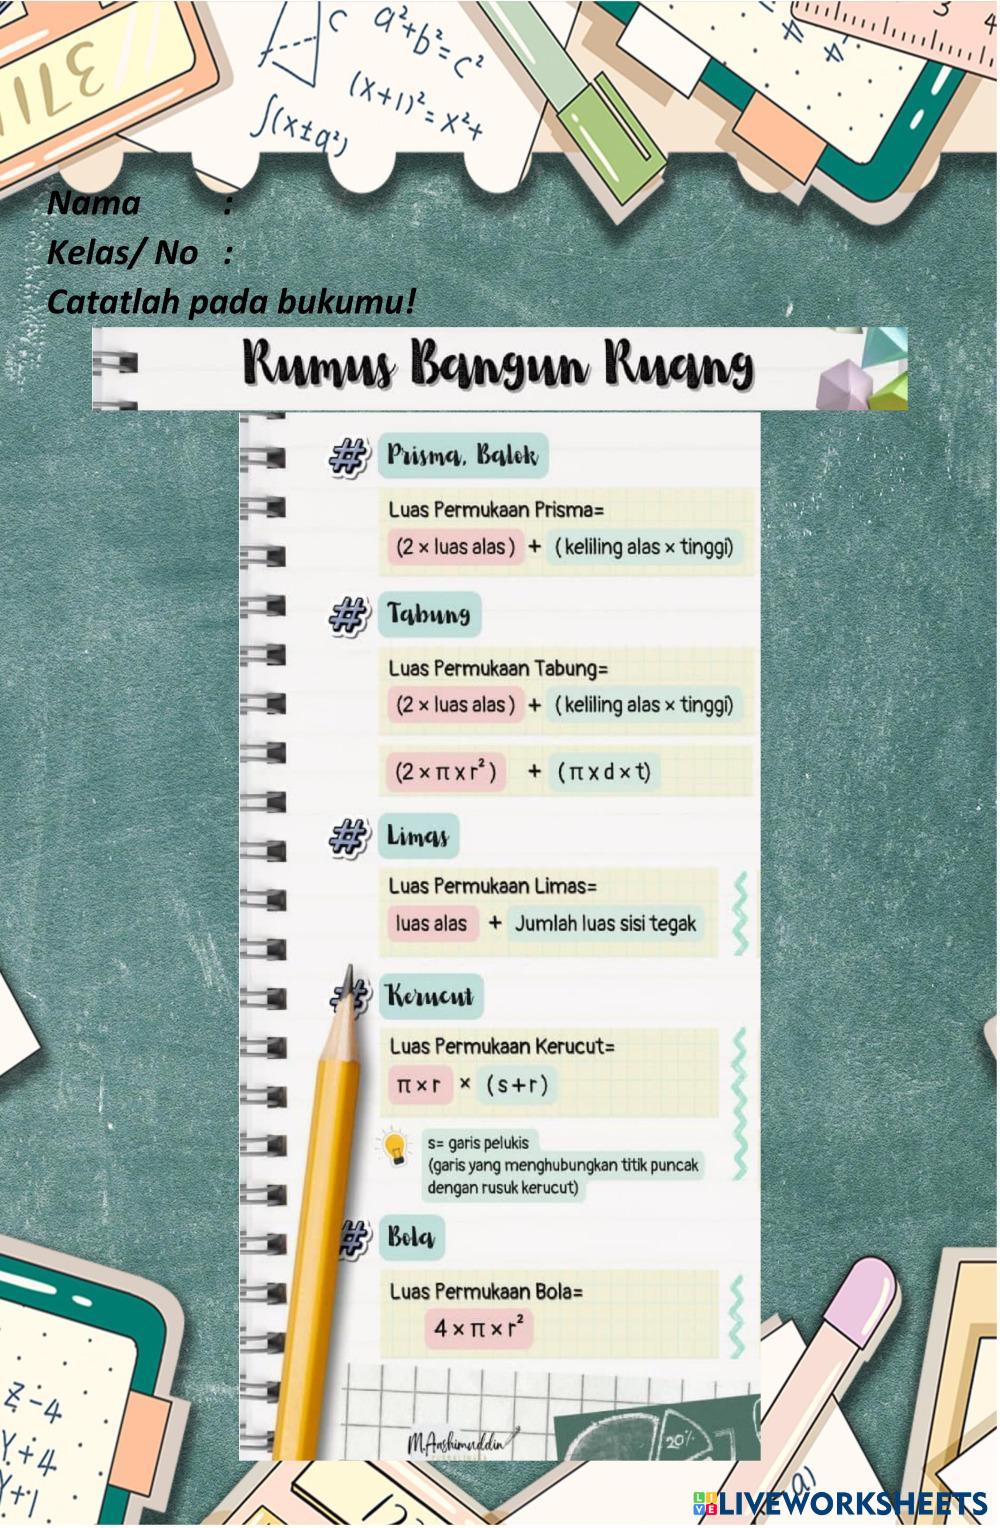 371LE
C
a²+b²=c²
(x+1)²=x²+
∫(x±a²)
3 4
Nama :
Kelas/ No :
Catatlah pada bukumu!
Rumus Bangun Ruang
# Prisma, Balok
Luas Permukaan Prisma=
(2 × luas alas) + (keliling alas × tinggi)
# Tabung
Luas Permukaan Tabung=
(2 × luas alas) + (keliling alas × tinggi)
(2 × π x r²) + (π x d × t)
# Limas
Luas Permukaan Limas=
luas alas + Jumlah luas sisi tegak
# Kerucut
Luas Permukaan Kerucut=
π × r × (s+r)
s= garis pelukis
(garis yang menghubungkan titik puncak
dengan rusuk kerucut)
# Bola
Luas Permukaan Bola=
4 × π × r²
Z-4
Y+4
Y+1
20%
M.Aashimuddin
12
a)
LIVEWORKSHEETS